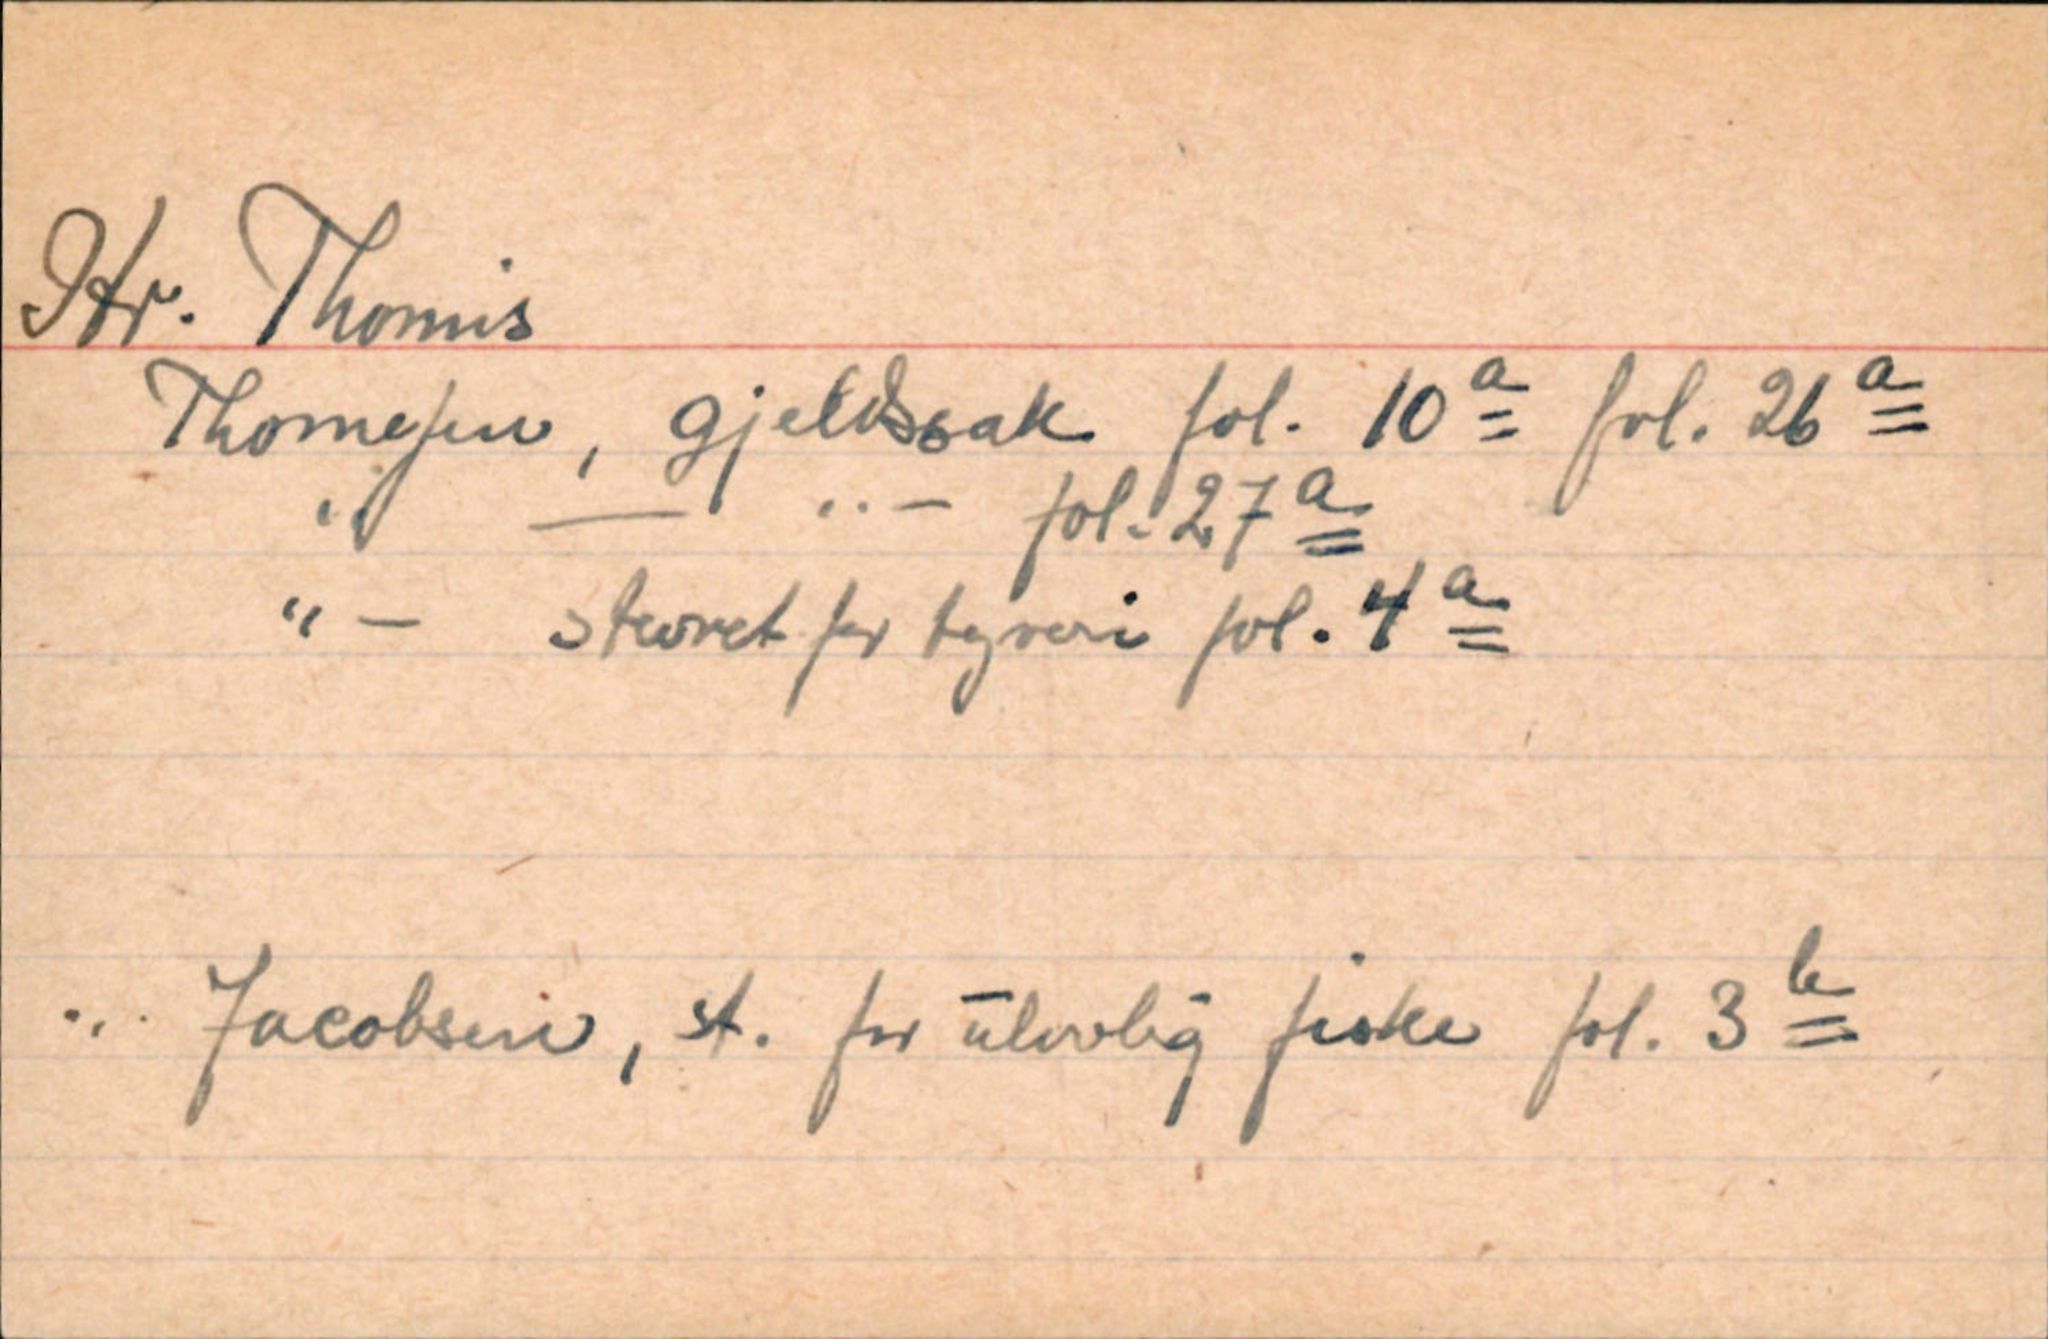 Hr. Thomis
Thomesen, gjeldssak fol. 10a fol. 26a
" — " - fol. 27a
" - stevnet for tyveri fol. 4a
" Jacobsen, st. for ulovlig fiske fol. 3b